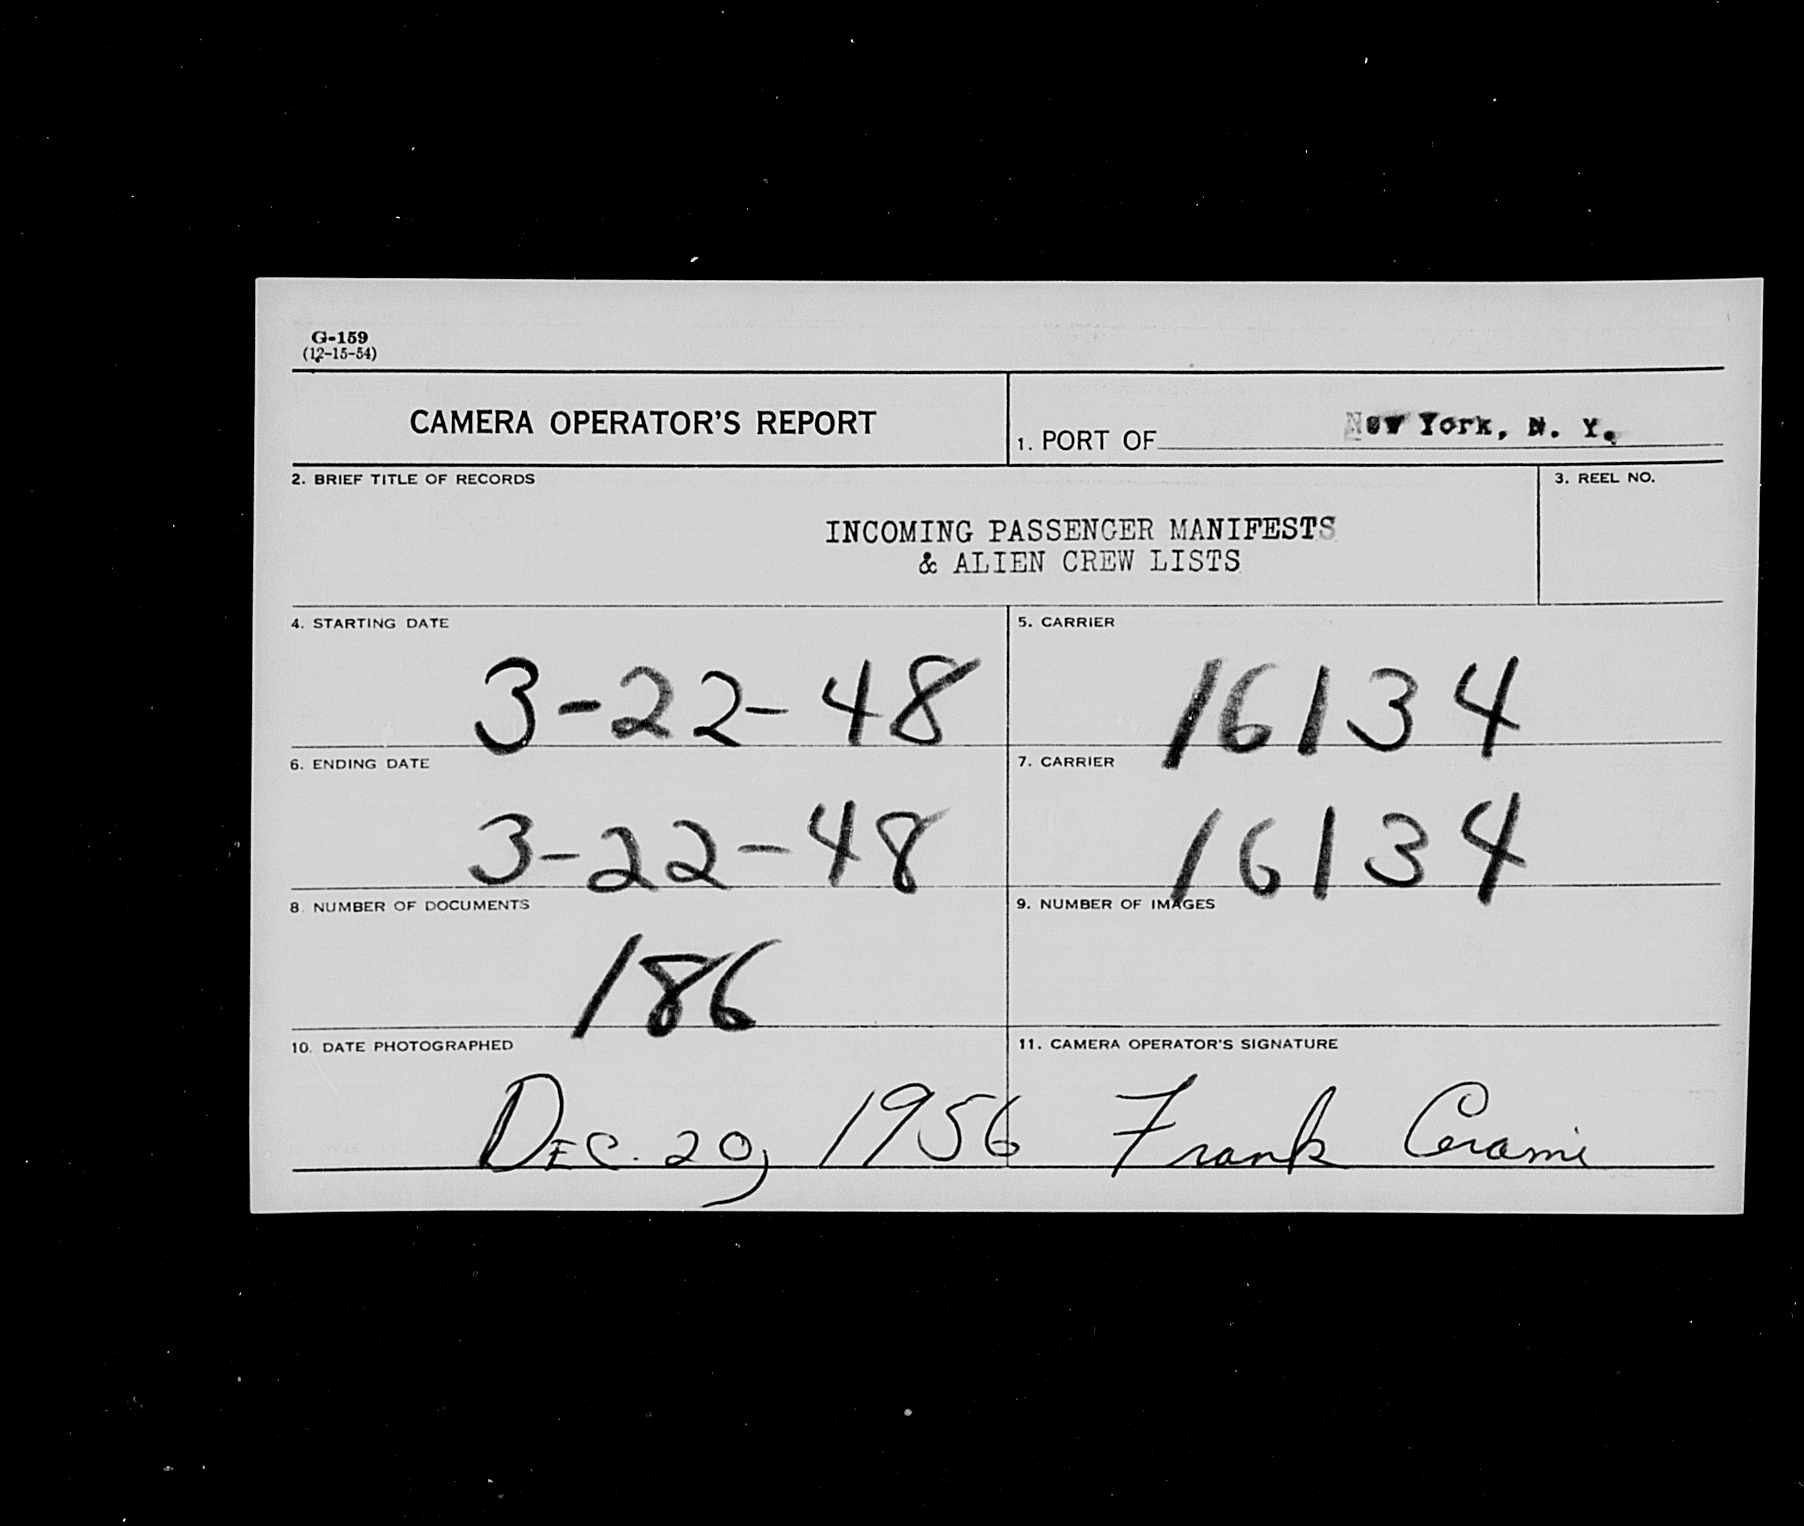 G-159
(12-15-54)
CAMERA OPERATOR'S REPORT
1. PORT OF New York, N. Y.
2. BRIEF TITLE OF RECORDS
3. REEL NO.
INCOMING PASSENGER MANIFESTS
& ALIEN CREW LISTS
4. STARTING DATE
5. CARRIER
3-22-48
16134
6. ENDING DATE
7. CARRIER
3-22-48
16134
8. NUMBER OF DOCUMENTS
9. NUMBER OF IMAGES
186
10. DATE PHOTOGRAPHED
11. CAMERA OPERATOR'S SIGNATURE
DEC. 20, 1956
Frank Cerami